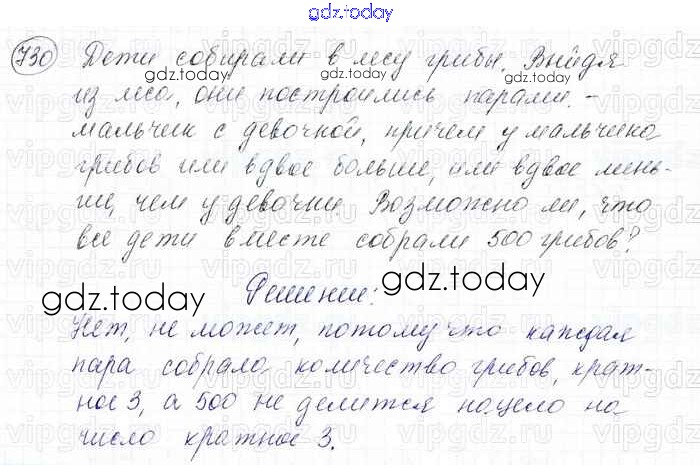 gdz.today
730 Дети собирали в лесу грибы. Выйдя
из леса, они построились парами. -
мальчик с девочкой, причём у мальчика
грибов или вдвое больше, или вдвое мень-
ше, чем у девочки. Возможно ли, что
все дети вместе собрали 500 грибов?
Решение:
Нет, не может, потому что каждая
пара собрала количество грибов, крат-
ное 3, а 500 не делится нацело на
число кратное 3.